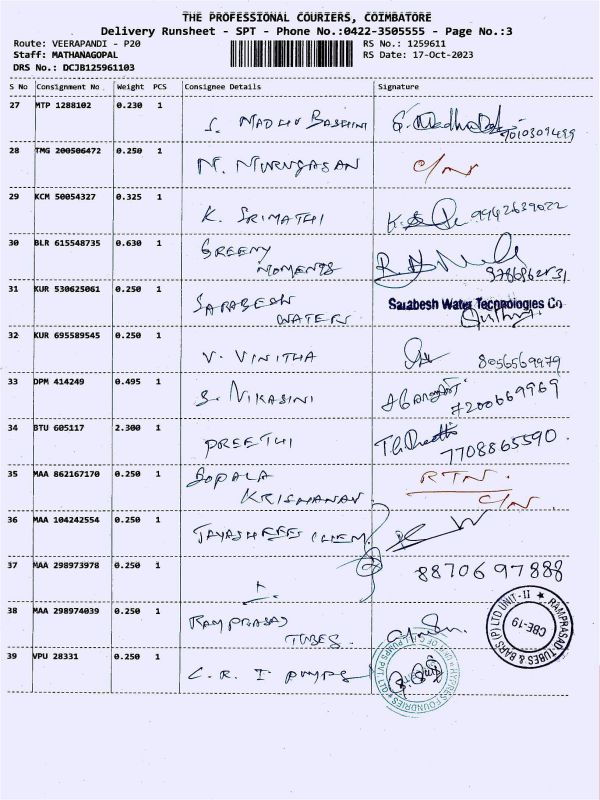 THE PROFESSIONAL COURIERS, COIMBATORE
Delivery Runsheet - SPT - Phone No.:0422-3505555 - Page No.:3
Route: VEERAPANDI - P20 RS No.: 1259611
Staff: MATHANAGOPAL RS Date: 17-Oct-2023
DRS No.: DCJB125961103
S No Consignment No. Weight PCS Consignee Details Signature
27 MTP 1288102 0.230 1
S. MADHU BASHINI
28 TMG 200506472 0.250 1
N. MURUGASAN C/N
29 KCM 50054327 0.325 1
K. SRIMATHI 9942639022
30 BLR 615548735 0.630 1
GREENY
MOMENTS
31 KUR 530625061 0.250 1
SARABESH Sarabesh Water Technologies Co
WATERS
32 KUR 695589545 0.250 1
V. VINITHA 8056569979
33 DPM 414249 0.495 1
S. NIKASINI 7200669969
34 BTU 605117 2.300 1
PREETHI 7708865590.
35 MAA 862167170 0.250 1
GOPALA RTN.
KRISHANAN C/N.
36 MAA 104242554 0.250 1
JAYASHREE CHEM.
37 MAA 298973978 0.250 1
8870697888
38 MAA 298974039 0.250 1
RAMPRASAD
TUBES.
RAMPRASAD TUBES & BARS (P) LTD UNIT-II
CBE-19
39 VPU 28331 0.250 1
C. R. I PUMPS